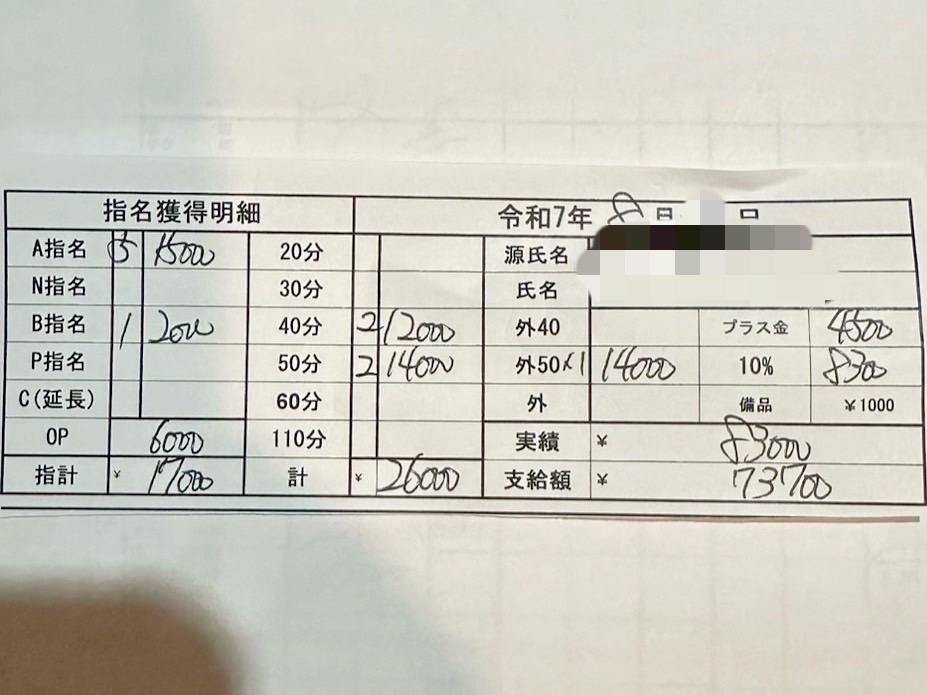 指名獲得明細 令和7年 8月 日
A指名 5 15000 20分 源氏名
N指名 30分 氏名
B指名 1 2000 40分 2 12000 外40 プラス金
P指名 50分 2 14000 外50×1 14000 10% 8300
C(延長) 60分 外 備品 ¥1000
OP 6000 110分 実績 ¥ 83000
指計 ¥ 17000 計 ¥ 26000 支給額 ¥ 73700